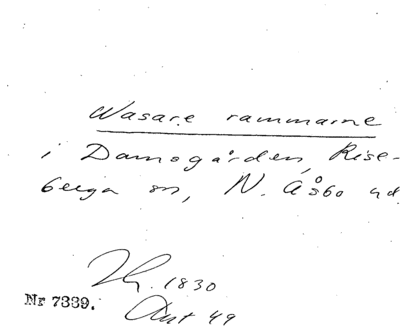 Wasare rammarne
i Damsgården, Rise-
berga sn, N. Åsbo hd.
1830
Nr 7339.
49